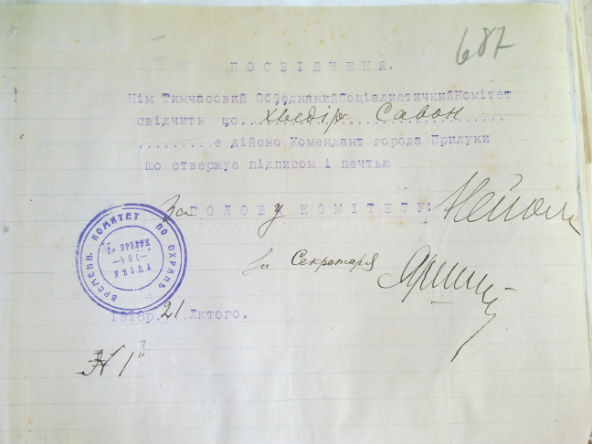 687
ПОСВІДЧЕНЯ.
Цім Тимчасовий ОбʼєднанийСоціалистичнийКомітет
свідчить що...Хведір Савон
.........е дійсно Комендант города Прилуки
що ствержує підписом і печтью
За ГОЛОВУ КОМІТЕТУ:
за Секретаря
ВРЕМЕНН. КОМИТЕТ ПО ОХРАНѢ
1918р. 21 Лютого.
№ 17